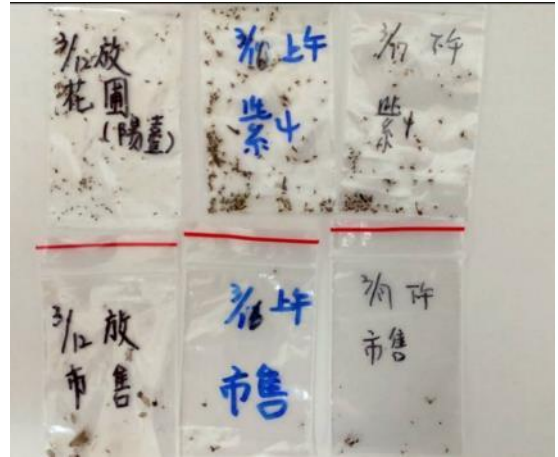 3/12 放
花圃
(陽臺)
3/16 上午
紫4
3/17 下午
紫4
3/12 放
市售
3/16 上午
市售
3/17 下午
市售